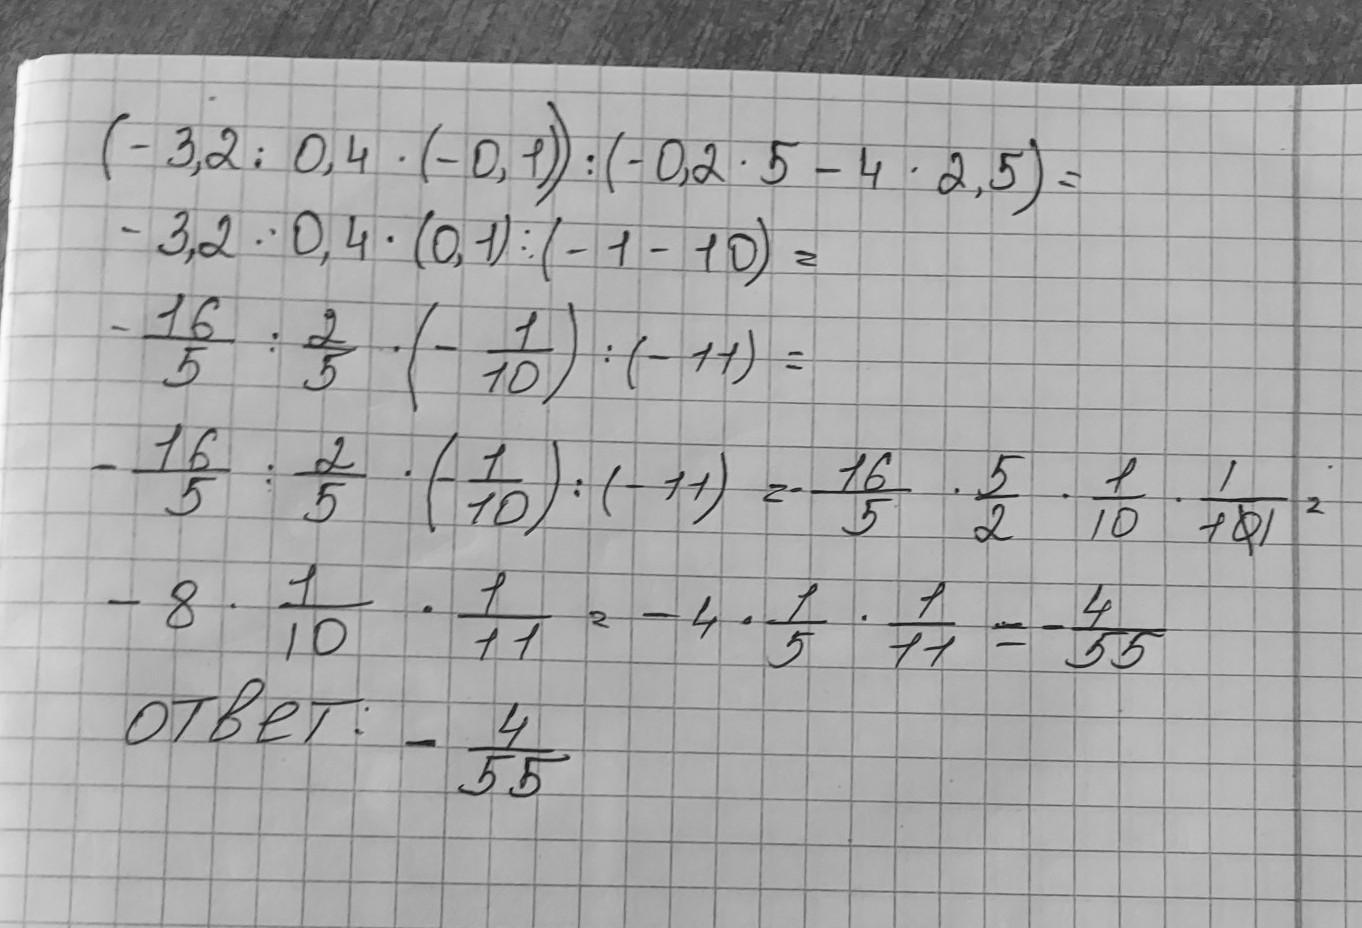 (-3,2 : 0,4 · (-0,1)) : (-0,2 · 5 - 4 · 2,5) =
-3,2 : 0,4 · (0,1) : (-1 - 10) =
- 16/5 : 2/5 · (- 1/10) : (-11) =
- 16/5 : 2/5 · (- 1/10) : (-11) = - 16/5 · 5/2 · 1/10 · 1/11 =
- 8 · 1/10 · 1/11 = - 4 · 1/5 · 1/11 = - 4/55
ответ: - 4/55